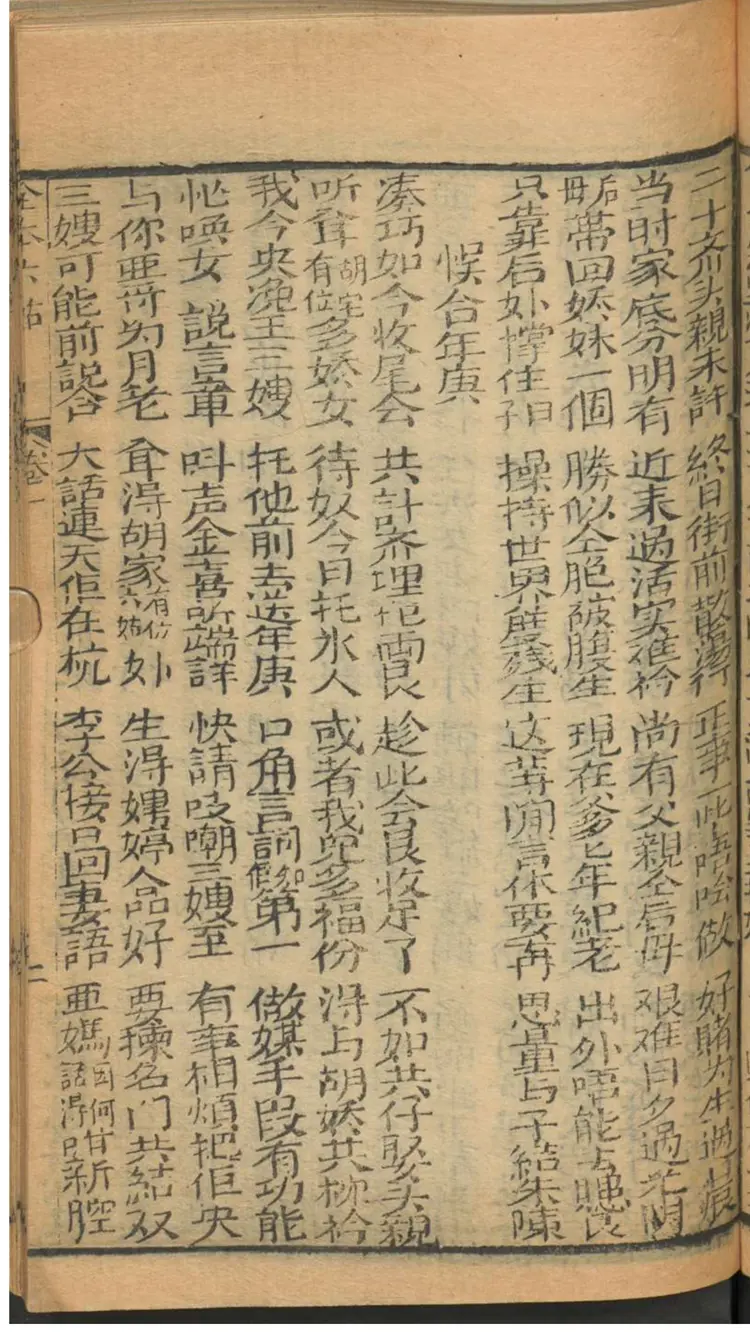 二十齐头親未許 終日街前散蕩行 正事一些唔哙做 好賭为生過
当时家底分明有 近来過活实难衿 尚有父親仝后母 艰难日夕過光阴
后母帶回娇妹一個 勝似仝胞破腹生 現在爹爹年紀老 出外唔能去
只靠后妣撑住 操持世界度残生 这等閒言休要再 思量与子結朱陳
悞合年庚
凑巧如今收尾会 共計齐埋 趁此会艮收足了 不如共仔娶头親
听聋胡宅有位多娇女 待奴今日托氷人 或者我兒多福份 淂与胡娇共枕衿
我今央浼王三嫂 托他前去送年庚 口角言詞第一 做媒手段有功能
忙唤女 説言章 叫声金喜听端詳 快請吱嘲三嫂至 有事相煩把佢央
与你亜哥为月老 耷淂胡家有位六姑妙 生淂娉婷人品好 要揀名门共結双
三嫂可能前説合 大話連天佢在杭 李公接口回妻語 亜媽因何話得甘新腔
全本六姑 卷一 二